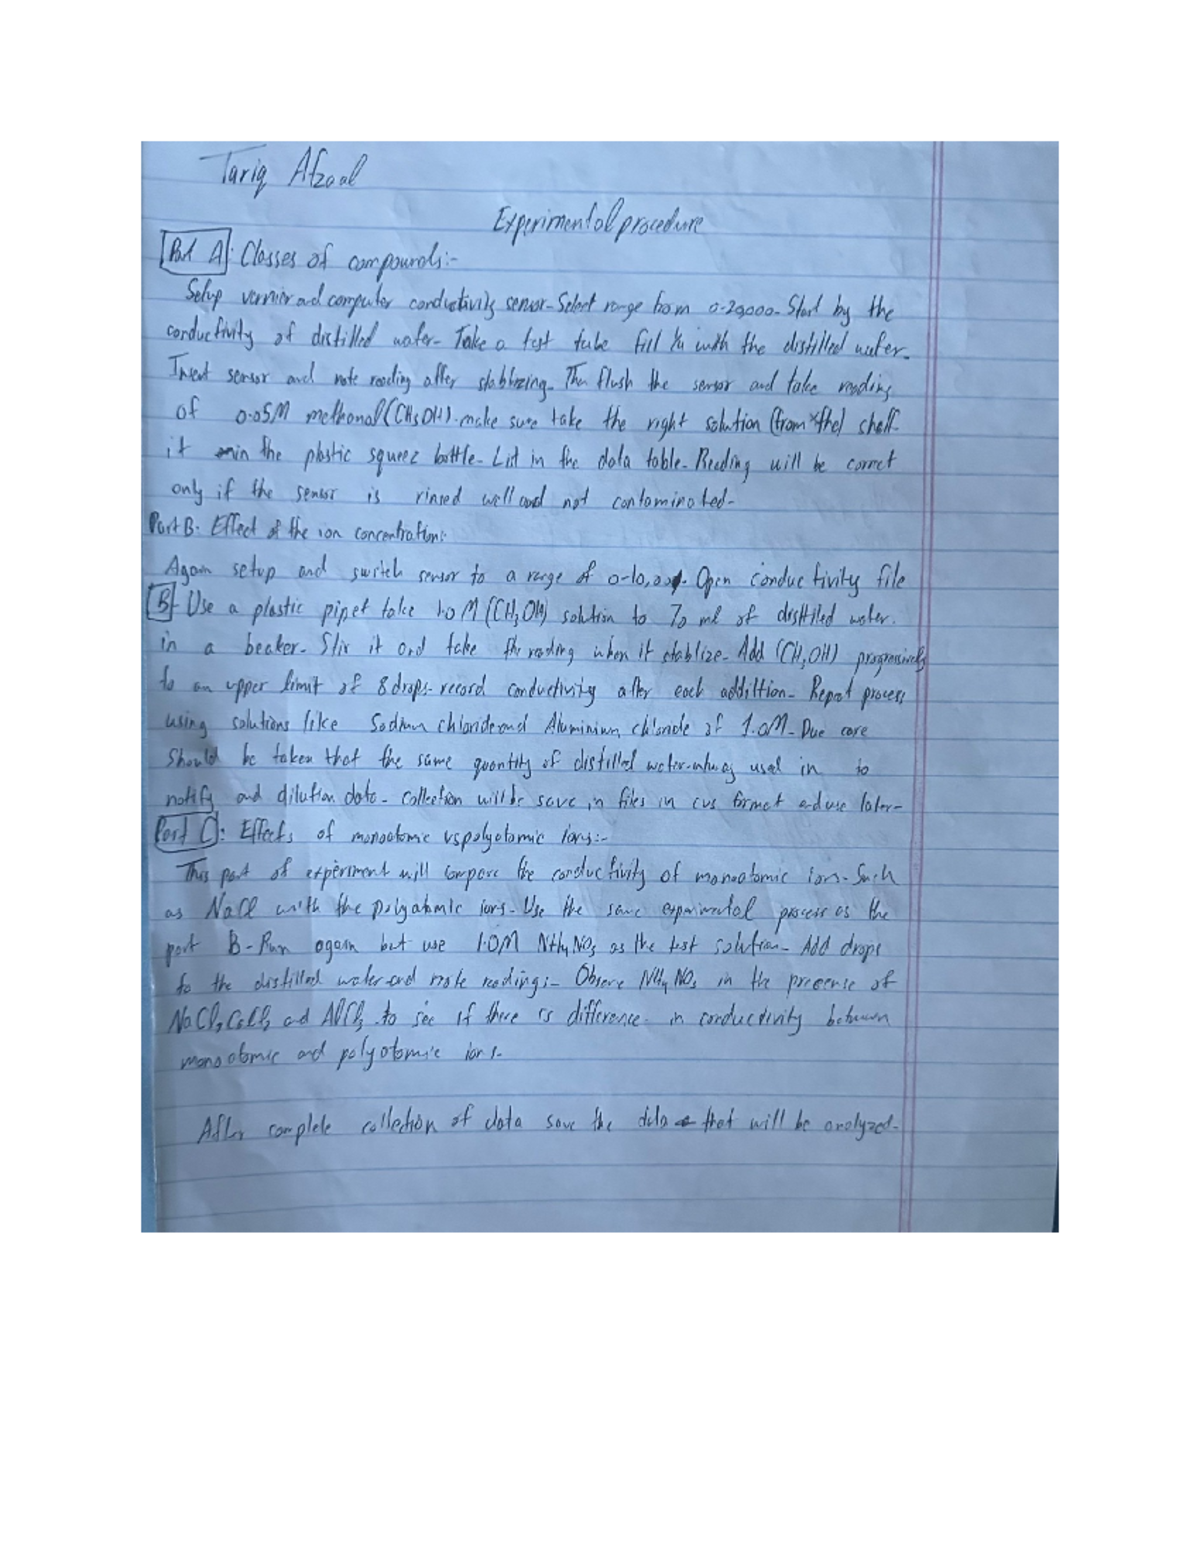 Tariq Afzaal
Experimental procedure
Part A: Classes of compounds:-
Setup vernier and computer conductivity sensor- Select range from 0-20,000- Start by the
conductivity of distilled water- Take a test tube fill with the distilled water-
Insert sensor and note reading after stabblizing- Then flush the sensor and take reading
of 0.05M methonal (CH3OH). make sure take the right solution (from the) shelf-
it in the plastic squeez bottle- List in the data table- Reading will be correct
only if the sensor is rinsed well and not contaminated-
Part B- Effect of the ion concentration:-
Again setup and switch sensor to a range of 0-10,000. Open conductivity file
B- Use a plastic pipet take 1.0 M (CH3OH) solution to 70 ml of disttiled water.
in a beaker- Stir it and take the reading when it stablize- Add (CH3OH) progressively
to an upper limit of 8 drops- record conductivity after each addittion- Repeat process
using solutions like Sodium chloride and Aluminium chloride of 1.0M- Due care
Should be taken that the same quantity of distilled water used in to
notify and dilution data- Collection will be save in files in cvs format and use later-
Part C: Effects of monoatomic vs polyatomic ions:-
This part of experiment will compare the conductivity of monoatomic ion- Such
as NaCl with the polyatomic ions- Use the same experimental process as the
part B- Run again but use 1.0M NH4NO3 as the test solution- Add drops
to the distilled water and note readings:- Observe NH4NO3 in the precense of
NaCl, CaCl2 and AlCl3 to see if there is difference in conductivity between
monoatomic and polyatomic ions-
After complete collection of data save the data that will be analyzed-